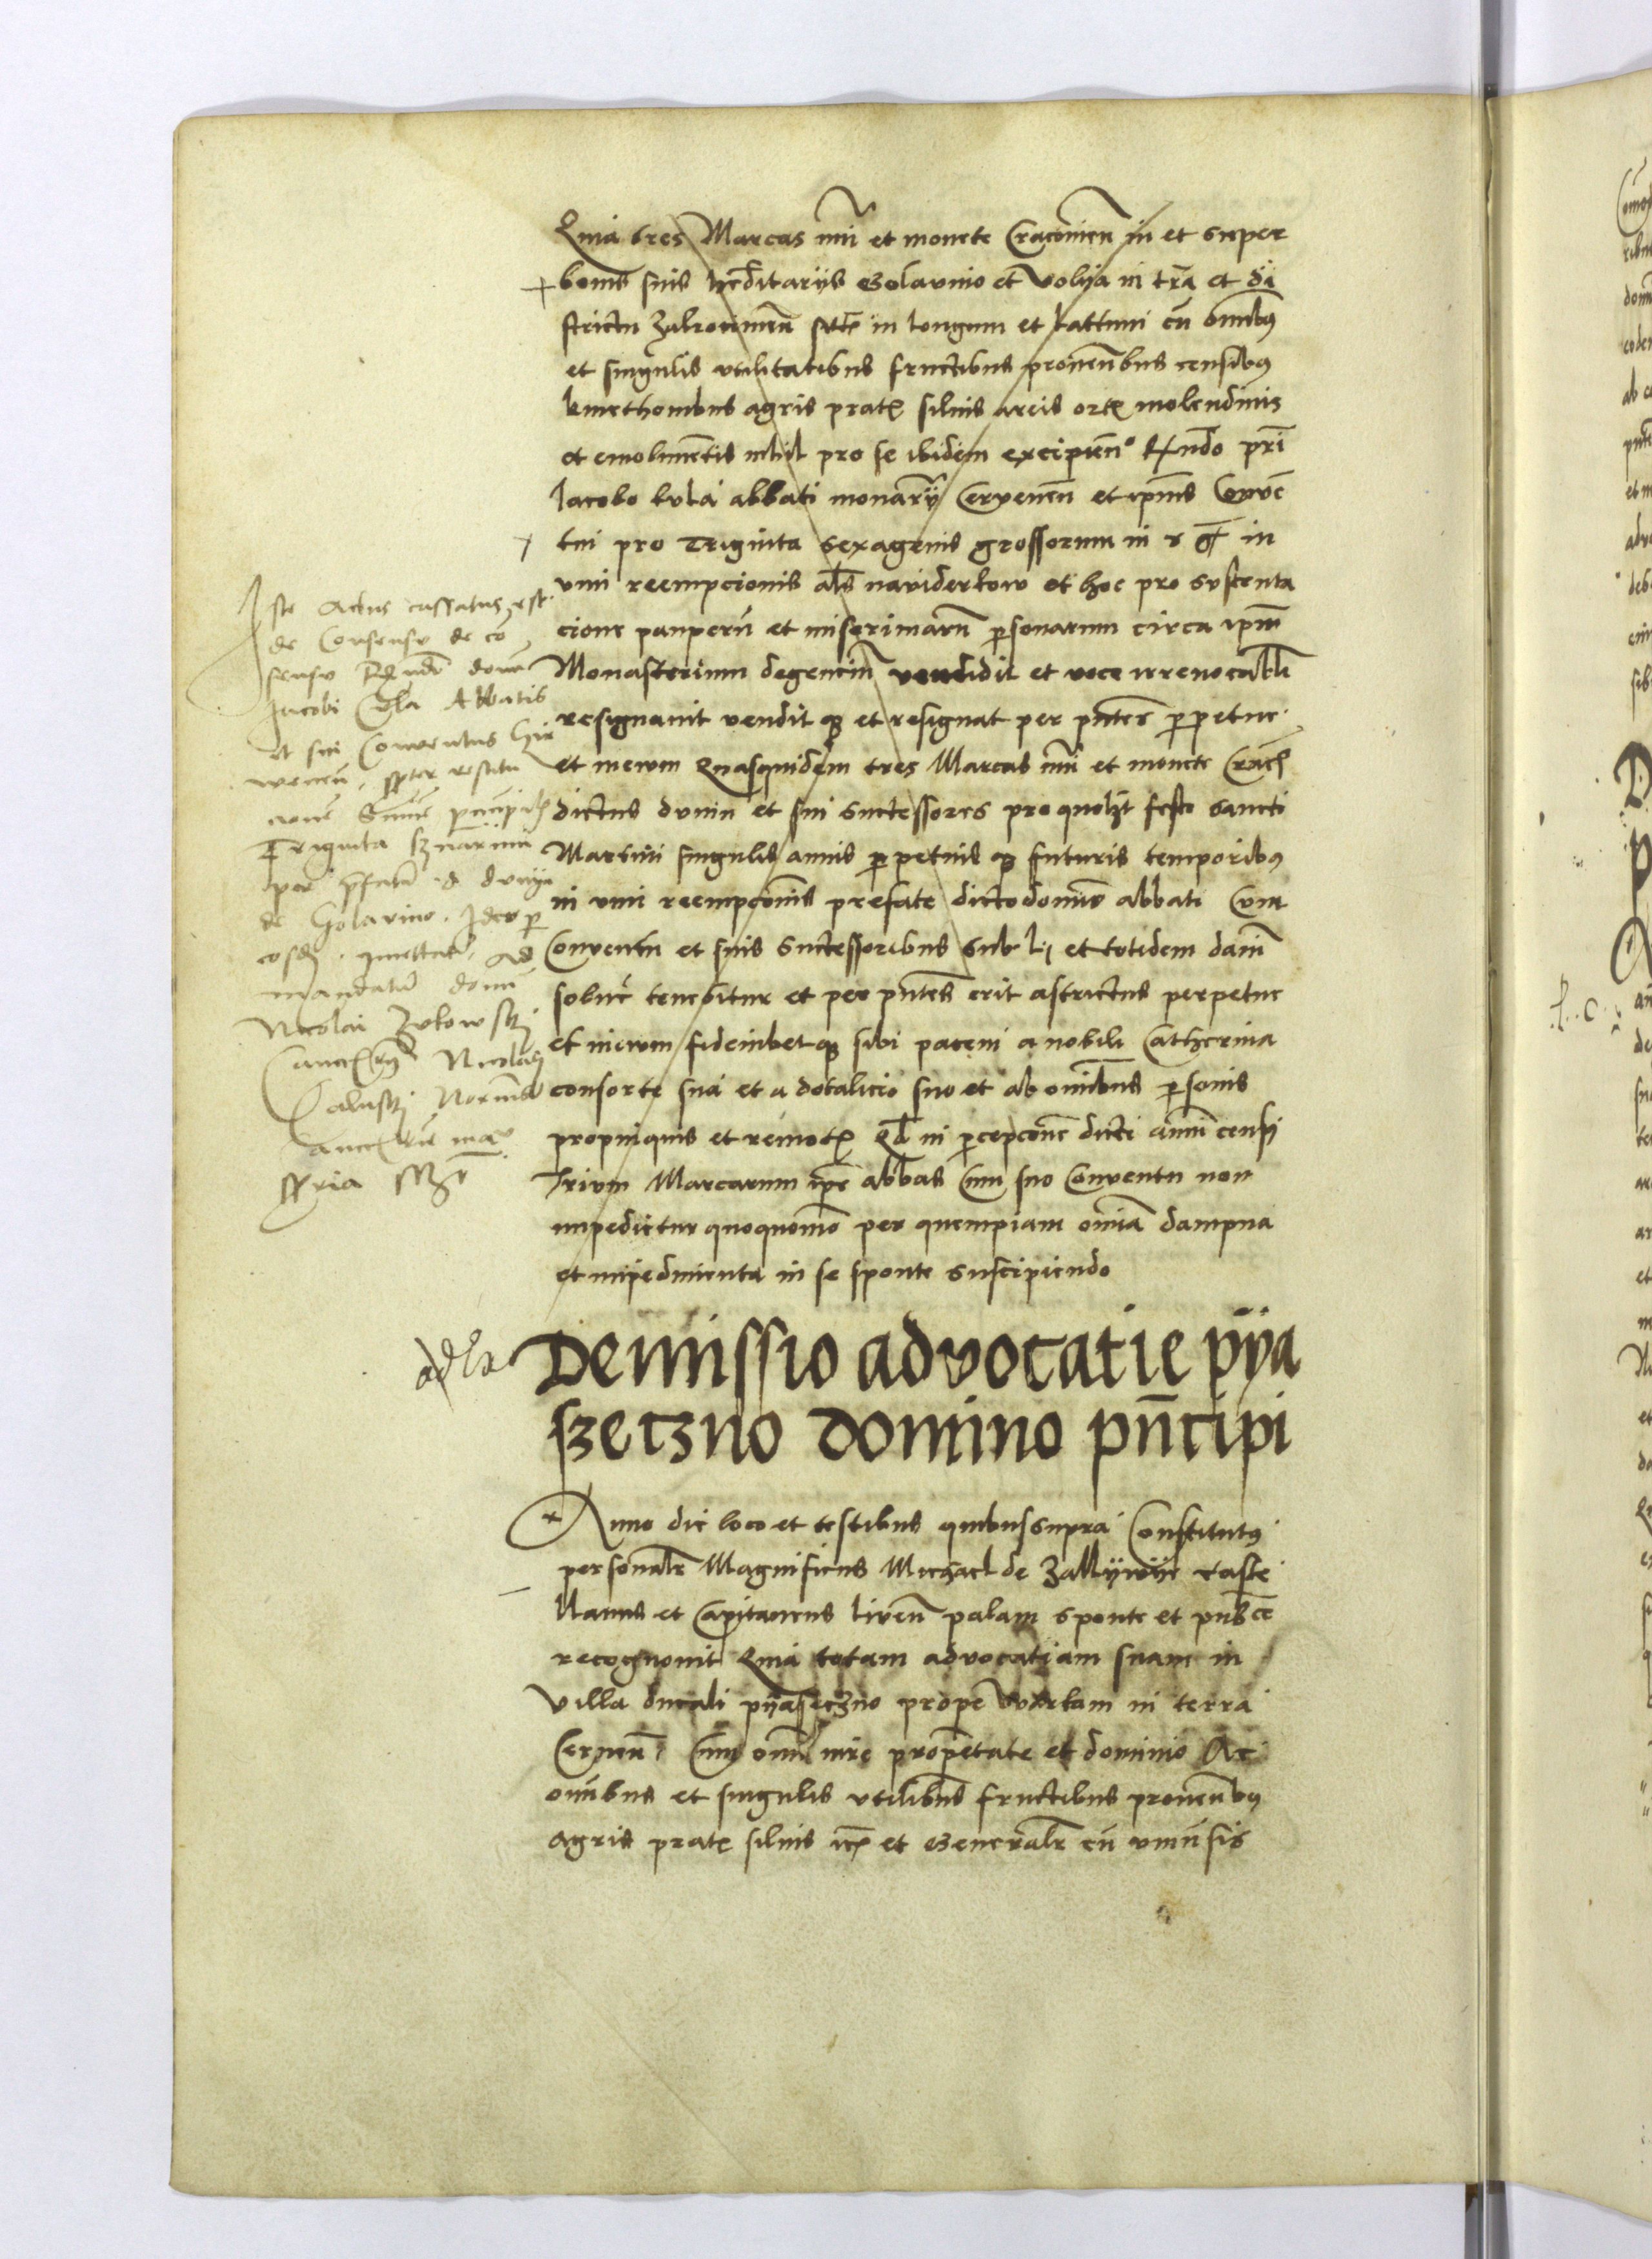 Quia tres Marcas nūi et monete Cracovien in et super
bonis suis hr̄editariis Golawino et Volija in tr̄a et di
strictu Zakrocimen̄ sitis in longum et latum cū omībus
et singulis utilitatibus fructibus provenībus censibus
kmethonibus agris pratis silvis areis ortis molendinis
et emolumētis nihil pro se ibidem excipien̄ Rndo pr̄i
Jacobo kula abbati monarij Cervenen̄ et ipīus Convē
tui pro Triginta sexagenis grossorum in r gr̄ in
vim reempcionis als naviderkow et hoc pro sustenta
cione pauperū et miserimarū personarum circa ipm̄
Monasterium degenciū vendidit et voce irrevocabli
resignavit vendit que et resignat per pn̄tes perpetue
et in evum Quasquidem tres Marcas nūi et monete Crac̄
dictus dunin et sui successores pro quolīt festo sancti
Martini singulis annis perpetuis que futuris temporibus
in vim reempcōnis prefate dicto domino abbati Cum
Conventu et suis successoribus sub li et totidem dam̄
solvē tenebitur et per pn̄tes erit astrictus perpetue
et in evum fideiubet que sibi pacem a nobili Catherina
consorte sua et a dotalicio suo et ab omībus personis
propinquis et remotis Qd̄ in percepcōne dicti annui censi
Trium Marcarum ipē abbas cum suo Conventu non
impedietur quoquomō per quempiam omīa dampna
et impedimenta in se sponte suscipiendo
Iste Actus cassatus est
de Consensu de cō
sensu Rndi domī
Jacobi Cula Abbatis
et sui Conventus Cir
wenen̄, propter restitu
cionē Sūme pecunialis
Triginta sexnarum
per p̄fatū d duniji
de Golavino. Ideo per
eosdē. quettatū. Ad
mandatū domī
Nicolai Zukowskj
Cancrij Nicolaus
mā
ppria sszt
ad la
Demissio advocatie pÿa
szeczno domino pn̄cipi
Anno die loco et testibus quibus supra Constitutus
personalr̄ Magnificus Michael de Zallijwije Caste
llanus et Capitaneus liven̄ palam sponte et publice
recognovit Quia totam advocatiam suam in
villa ducali pijaseczno prope Wartam in terra
Cernen̄ Cum omī iure proprietate et dominio Ac
omībus et singulis utilibus fructibus provenībus
agris pratis silvis itē et Generalr̄ cū universis